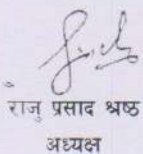 राजु प्रसाद श्रेष्ठ
अध्यक्ष